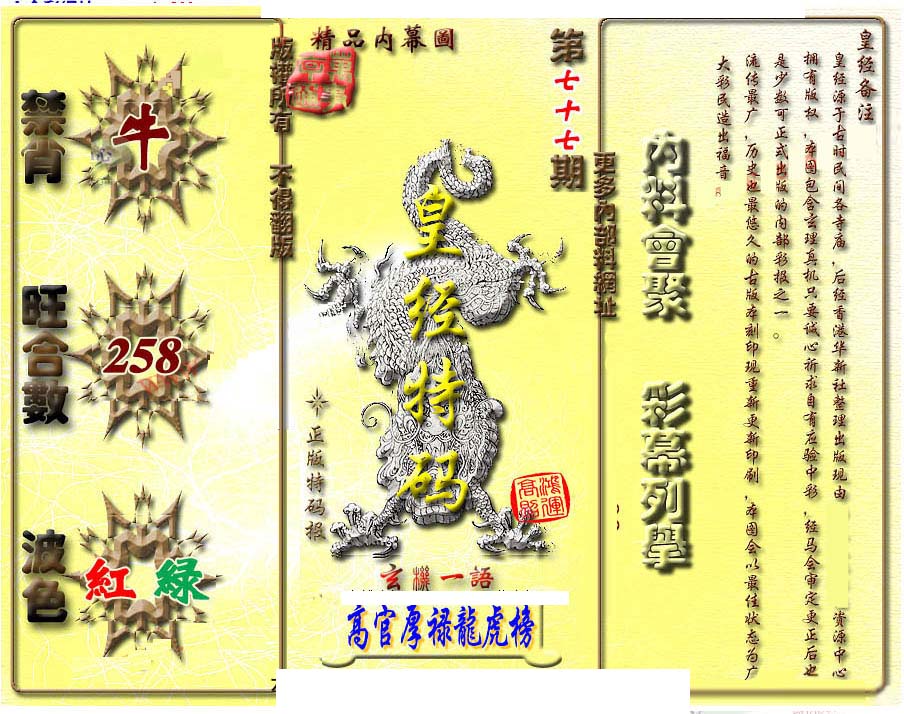 精品内幕圖
版權所有 不得翻版
第七十七期
禁肖
牛
旺合數
258
波色
紅 綠
皇经特码
正版特码报
鴻運高照
玄機一語
高官厚禄龍虎榜
更多內部料網址
內料會聚 彩幕列舉
皇经备注
皇经源于古时民间各寺庙,后经香港华新社整理出版现由 资源中心
拥有版权,本图包含玄理真机只要诚心祈求自有应验中彩,经马会审定更正后也
是少数可正式出版的内部彩报之一。
流传最广,历史也最悠久的古版本刻印现重新更新印刷,本图会以最佳状态为广
大彩民造出福音